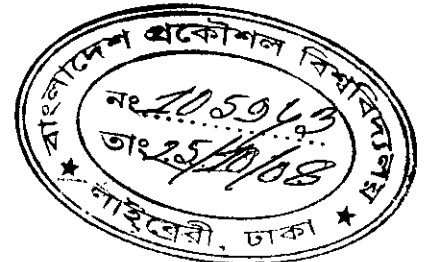 বাংলাদেশ প্রকৌশল বিশ্ববিদ্যালয়
নং 105943
তাং 25/10/08
★ লাইব্রেরী, ঢাকা ★